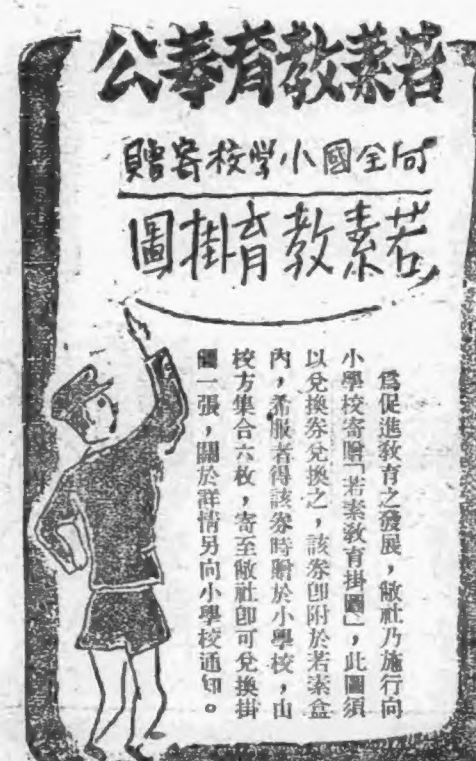 若素教育奉公
向全國小学校寄贈
若素教育掛圖
爲促進教育之發展，敝社乃施行向
小學校寄贈「若素教育掛圖」，此圖須
以兌換券兌換之，該券卽附於若素盒
內，希服者得該券時贈於小學校，由
校方集合六枚，寄至敝社卽可兌換掛
圖一張，關於詳情另向小學校通知。